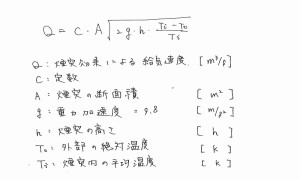 Q = C・A√(2g・h・(Ti-To)/Ti)
Q: 煙突効果による給気速度. [m³/s]
C: 定数
A: 煙突の断面積 [m²]
g: 重力加速度 = 9.8 [m/s²]
h: 煙突の高さ [h]
To: 外部の絶対温度 [k]
Ti: 煙突内の平均温度 [k]